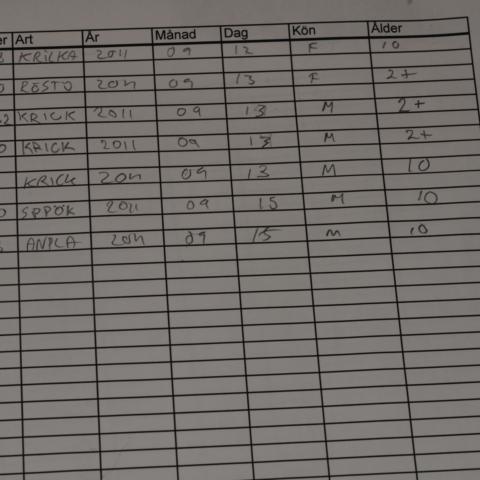 er Art År Månad Dag Kön Ålder
KRICKA 2011 09 12 F 10
RÖSTO 2011 09 13 F 2+
2 KRICK 2011 09 13 M 2+
0 KRICK 2011 09 13 M 2+
KRICK 2011 09 13 M 10
0 SPPÖK 2011 09 15 M 10
ANPLA 2011 09 15 M 10